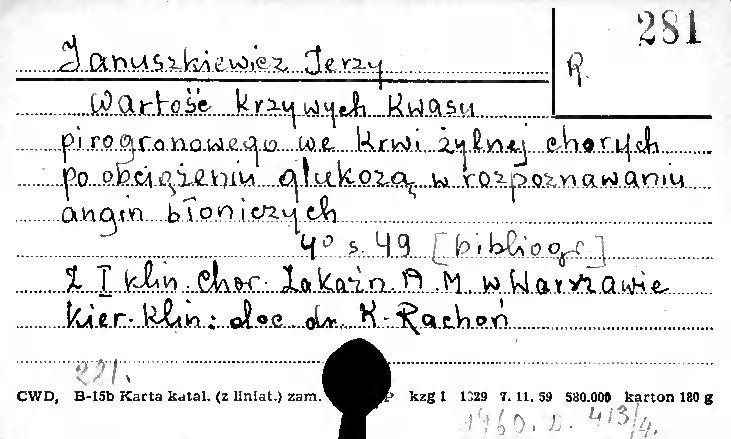 281
Januszkiewicz Jerzy
R.
Wartość krzywych kwasu
pirogronowego we krwi żylnej chorych
po obciążeniu glukozą w rozpoznawaniu
angin błoniczych
4⁰ s. 49 [bibliogr]
Z I klin. chor. Zakaźn A. M. w Warszawie
kier. klin: doc dr. K. Rachoń
221.
CWD, B-15b Karta katal. (z liniat.) zam. P kzg 1 1329 7. 11. 59 580.000 karton 180 g
1960. D. 413/4.